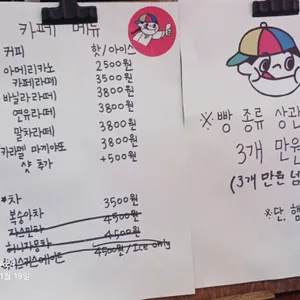 카페 메뉴
커피 핫/아이스
아메리카노 2500원
카페라떼 3500원
바닐라라떼 3800원
연유라떼 3800원
말차라떼 3800원
카라멜 마끼야또 3800원
샷 추가 +500원
*차 3500원
복숭아차 4500원
자스민차 4500원
허니자몽차
4500원/Ice only
1월 19일
※빵 종류 상관
3개 만원
(3개 만원 넘
※단, 햄